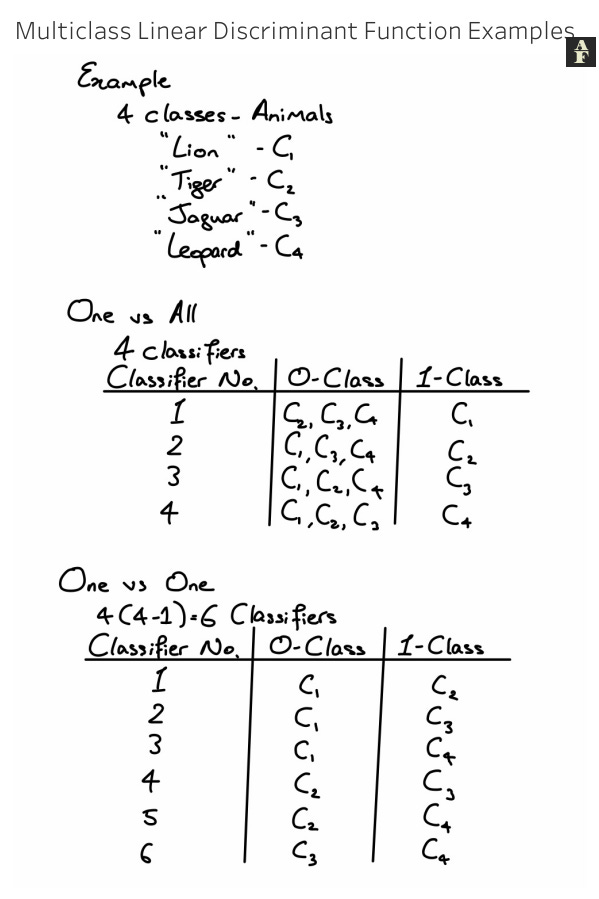 Multiclass Linear Discriminant Function Examples
A
F
Example
4 classes - Animals
"Lion" - C₁
"Tiger" - C₂
"Jaguar" - C₃
"Leopard" - C₄
One vs All
4 classifiers
Classifier No. | 0-Class | 1-Class
1 | C₂, C₃, C₄ | C₁
2 | C₁, C₃, C₄ | C₂
3 | C₁, C₂, C₄ | C₃
4 | C₁, C₂, C₃ | C₄
One vs One
4(4-1)=6 Classifiers
Classifier No. | 0-Class | 1-Class
1 | C₁ | C₂
2 | C₁ | C₃
3 | C₁ | C₄
4 | C₂ | C₃
5 | C₂ | C₄
6 | C₃ | C₄